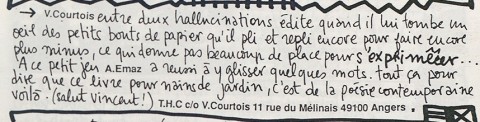 → V.Courtois entre deux hallucinations édite quand il lui tombe un
oeil des petits bouts de papier qu'il pli et repli encore pour faire encore
plus minus, ce qui donne pas beaucoup de place pour s'expri-mêêer...
A ce petit jeu A.Emaz a reussi à y glisser quelques mots. tout ça pour
dire que ce livre pour nains de jardin, c'est de la poesie contemporaine
voilà. (salut vincent!) T.H.C c/o V.Courtois 11 rue du Mélinais 49100 Angers.